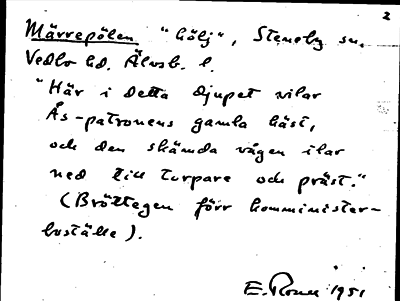 2
Märrepölen "hölj", Steneby sn.
Vedbo hd. Älvsb. l.
"Här i detta djupet vilar
Ås-patronens gamla häst,
och den skämda vägen ilar
ned till torpare och präst."
(Bröttegen förr komminister-
boställe).
E. Rosell 1951